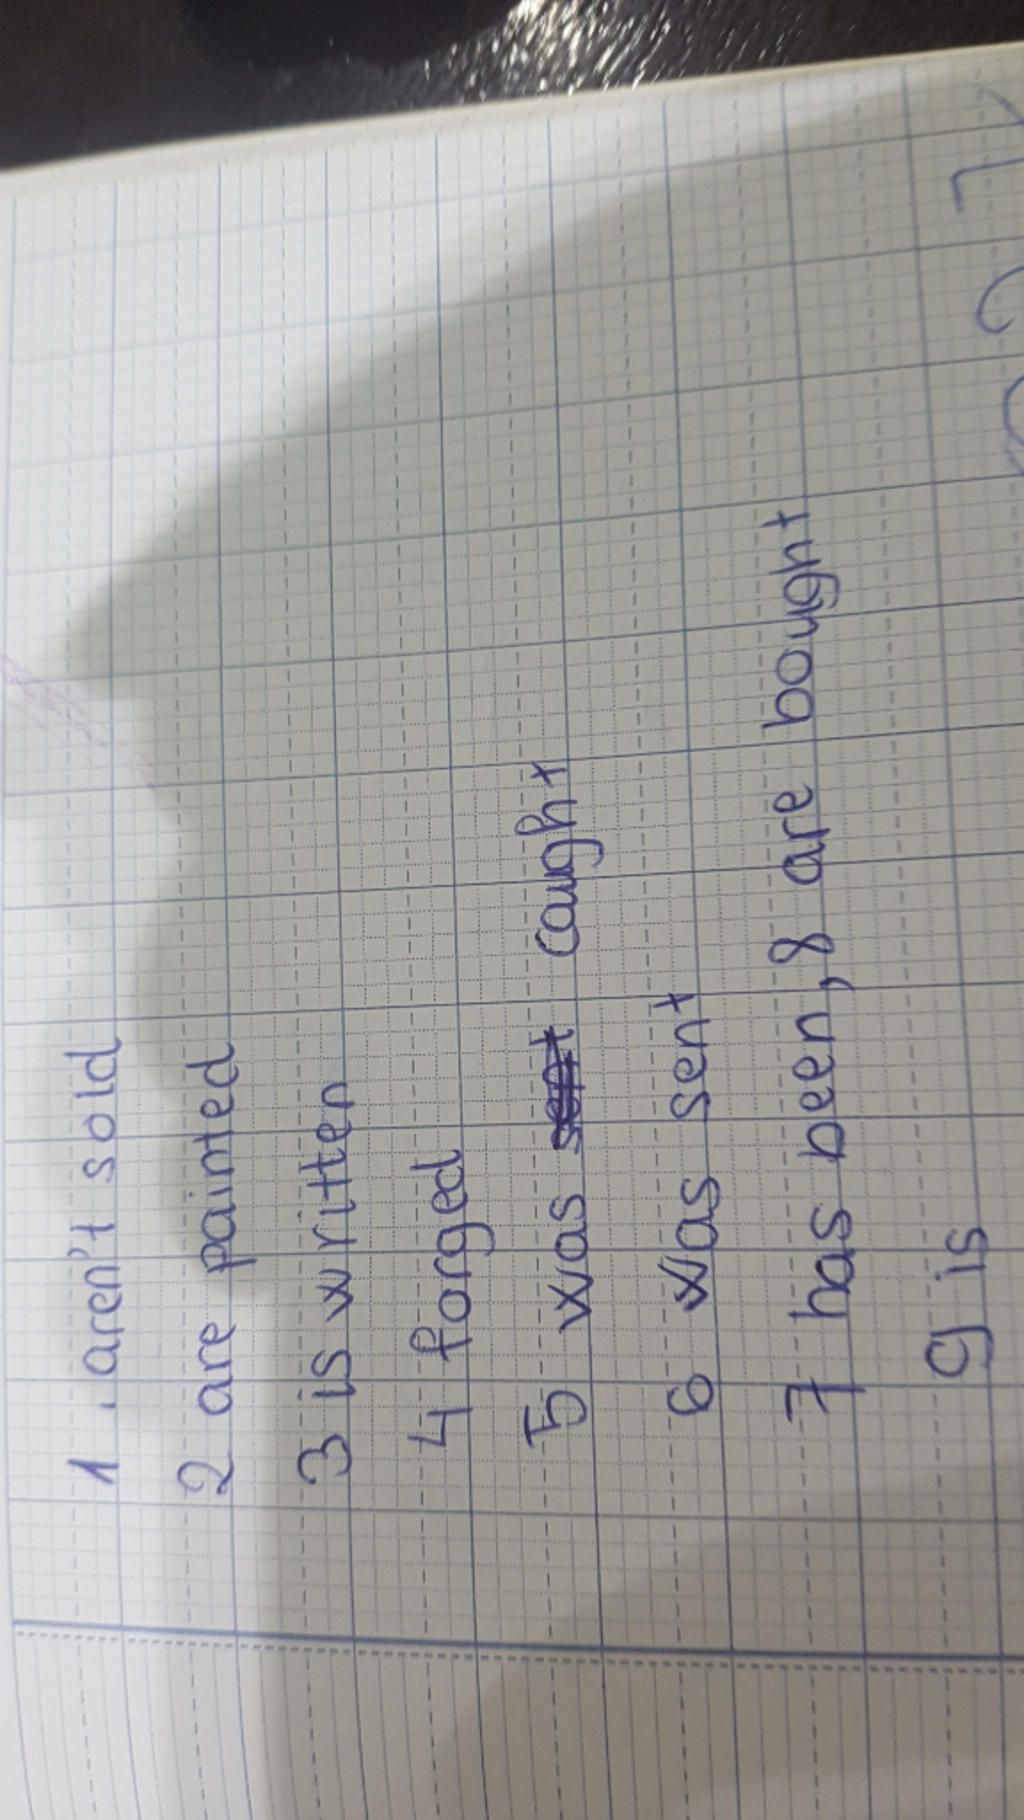 1 aren't sold
2 are painted
3 is written
4 forged
5 was caught
6 was sent
7 has been, 8 are bought
9 is